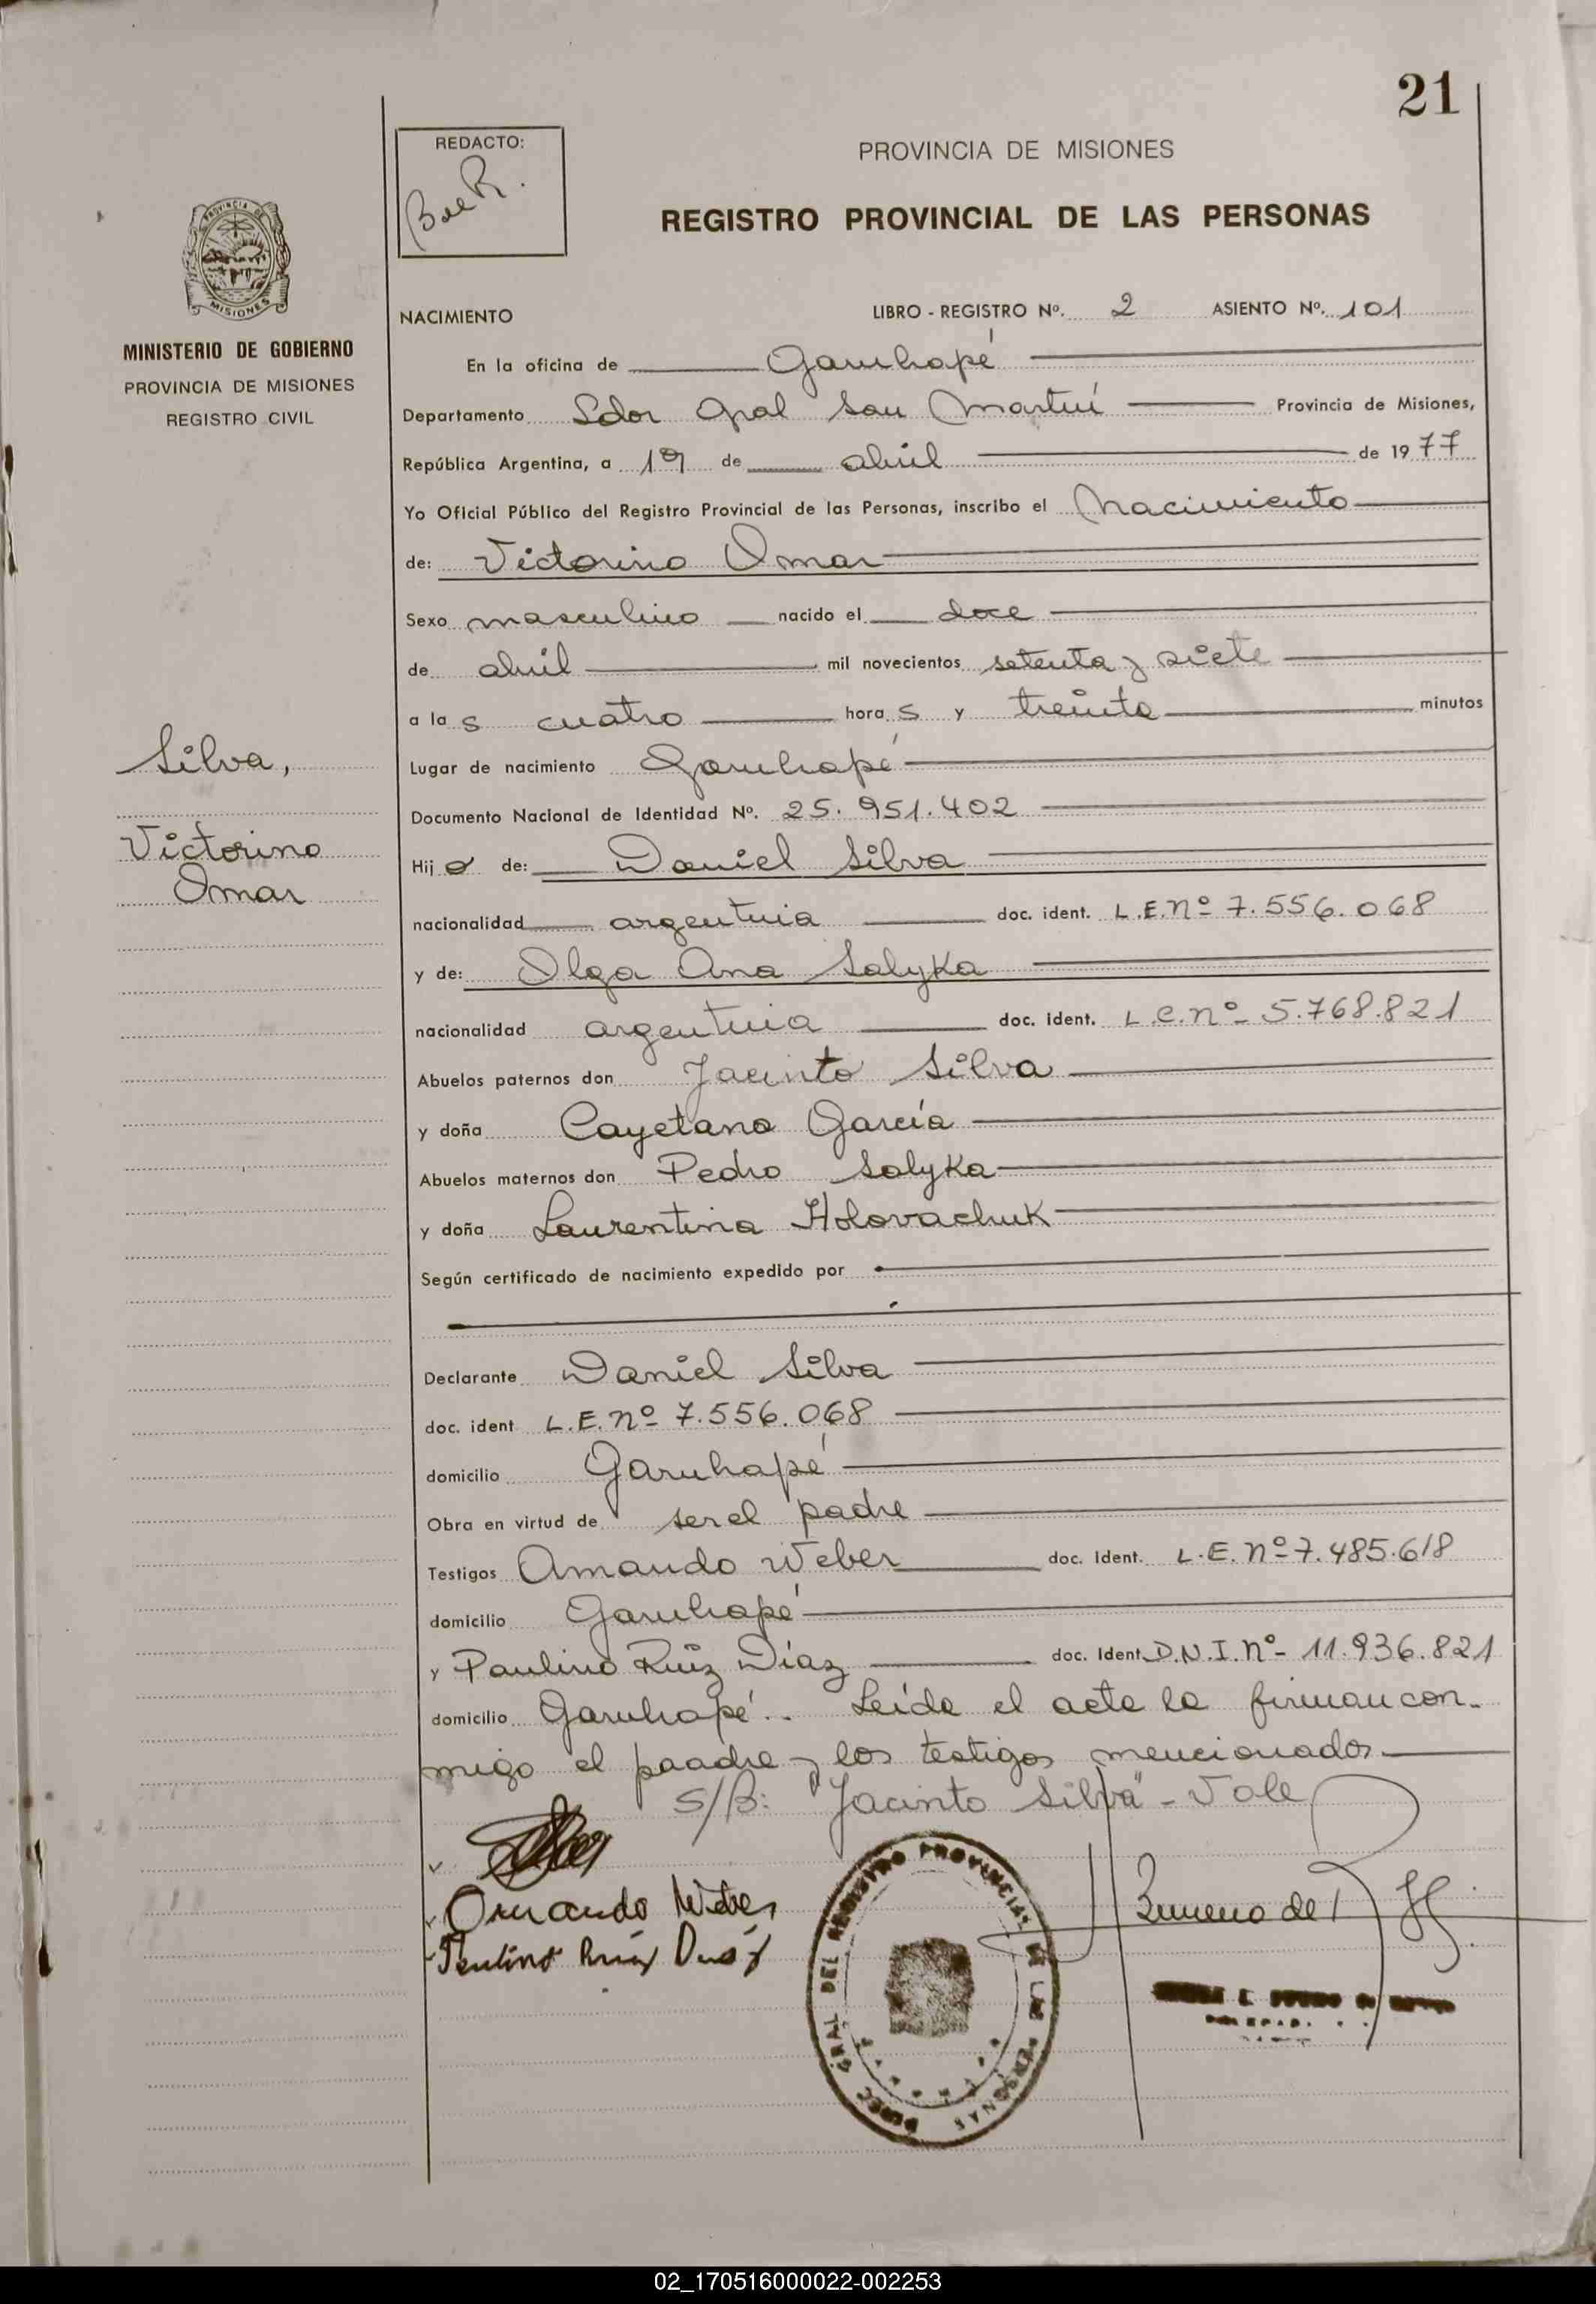 21
REDACTO:
PROVINCIA DE MISIONES
REGISTRO PROVINCIAL DE LAS PERSONAS
PROVINCIA DE
MISIONES
MINISTERIO DE GOBIERNO
PROVINCIA DE MISIONES
REGISTRO CIVIL
Silva,
Victorino
Omar
NACIMIENTO LIBRO - REGISTRO Nº. 2 ASIENTO Nº. 101
En la oficina de Garuhapé
Departamento Ldor Gral San Martín Provincia de Misiones,
República Argentina, a 19 de abril de 1977
Yo Oficial Público del Registro Provincial de las Personas, inscribo el Nacimiento
de: Victorino Omar
Sexo masculino nacido el doce
de abril mil novecientos setenta y siete
a las cuatro horas y treinta minutos
Lugar de nacimiento Garuhapé
Documento Nacional de Identidad Nº. 25.951.402
Hijo de: Daniel Silva
nacionalidad argentina doc. ident. L.E.Nº 7.556.068
y de: Olga Ana Salyka
nacionalidad argentina doc. ident. L.C.nº 5.768.821
Abuelos paternos don Jacinto Silva
y doña Cayetana García
Abuelos maternos don Pedro Salyka
y doña Laurentina Holovachuk
Según certificado de nacimiento expedido por
Declarante Daniel Silva
doc. ident L.E.Nº 7.556.068
domicilio Garuhapé
Obra en virtud de ser el padre
Testigos Amando Weber doc. Ident. L.E.Nº 7.485.618
domicilio Garuhapé
y Paulino Ruiz Díaz doc. Ident. D.N.I.Nº 11.936.821
domicilio Garuhapé.. Leída el acta la firman con-
migo el paadre y los testigos mencionados
S/B: "Jacinto Silva" - Vale
DIREC. GRAL DEL REGISTRO PROVINCIAL DE LAS PERSONAS
02_170516000022-002253